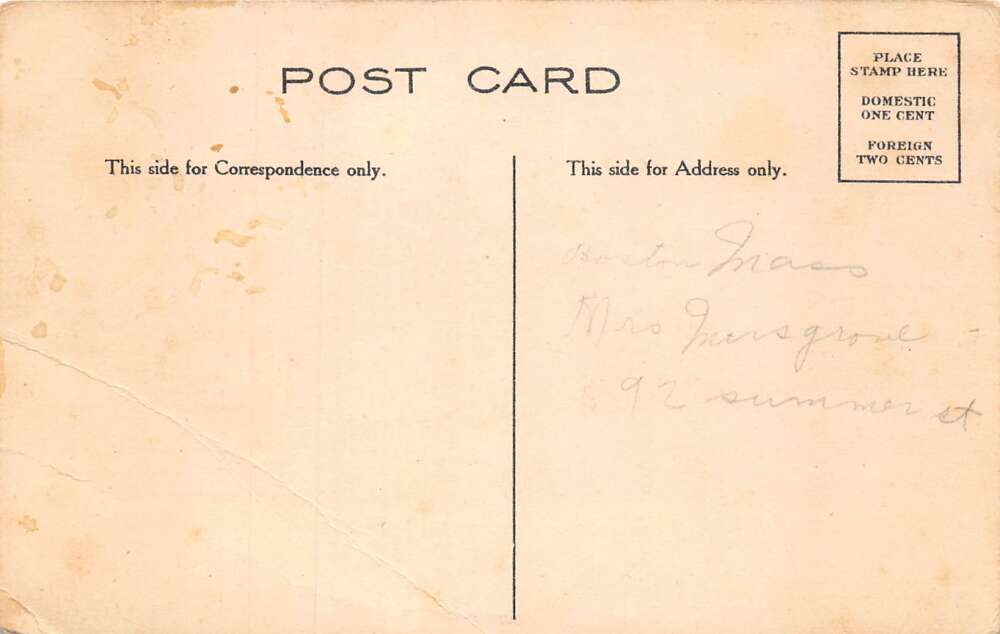 POST CARD
PLACE
STAMP HERE
DOMESTIC
ONE CENT
FOREIGN
TWO CENTS
This side for Correspondence only.
This side for Address only.
Boston Mass
Mrs Musgrove
92 summer st